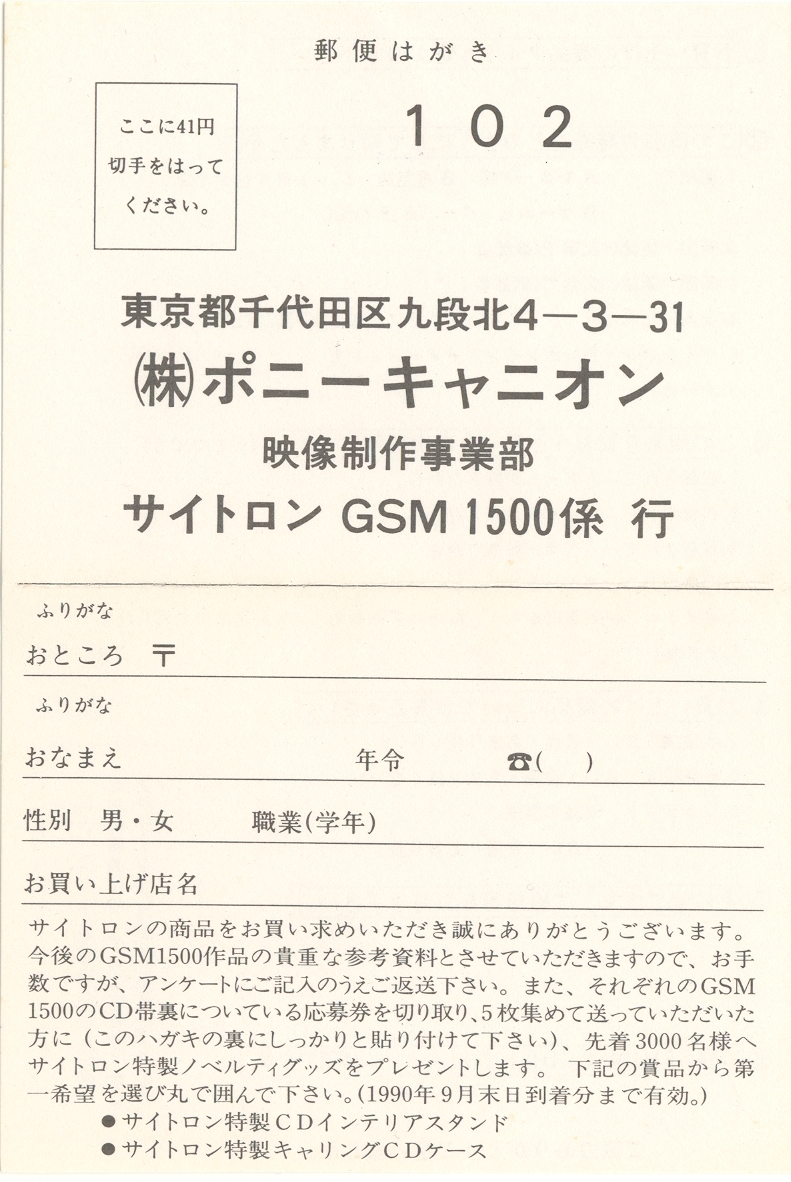 郵便はがき
ここに41円
切手をはって
ください。
102
東京都千代田区九段北4―3―31
(株)ポニーキャニオン
映像制作事業部
サイトロン GSM 1500係 行
ふりがな
おところ 〒
ふりがな
おなまえ 年令 ☎( )
性別 男・女 職業(学年)
お買い上げ店名
サイトロンの商品をお買い求めいただき誠にありがとうございます。
今後のGSM1500作品の貴重な参考資料とさせていただきますので、お手
数ですが、アンケートにご記入のうえご返送下さい。また、それぞれのGSM
1500のCD帯裏についている応募券を切り取り、5枚集めて送っていただいた
方に(このハガキの裏にしっかりと貼り付けて下さい)、先着3000名様へ
サイトロン特製ノベルティグッズをプレゼントします。 下記の賞品から第
一希望を選び丸で囲んで下さい。(1990年9月末日到着分まで有効。)
●サイトロン特製CDインテリアスタンド
●サイトロン特製キャリングCDケース